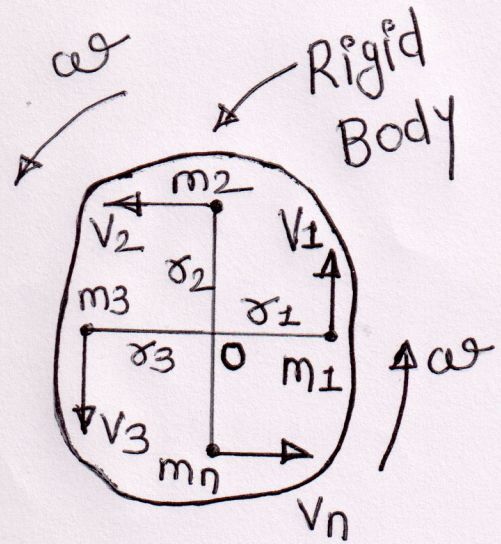 ω
Rigid
Body
m2
V2
V1
r2
m3
r1
r3
O
m1
ω
V3
mn
Vn